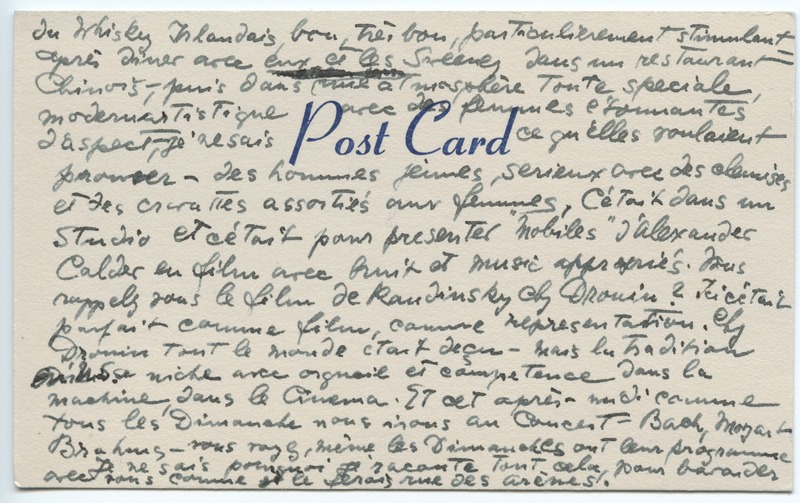 du Whisky Irlandais, bon, très bon, particulierement stimulant
après diner avec eux et les Sweeney dans un restaurant
Chinois, puis dans une atmosphère toute speciale,
modernartistique avec des femmes étonnantes
d'aspect, je ne sais ce qu'elles voulaient
Post Card
prouver – des hommes jeunes, serieux avec des chemises
et des cravattes assorties aux femmes. C'était dans un
Studio et c'était pour presenter "Mobiles" d'Alexander
Calder en film avec bruit et music appropriés. Vous
rappelez vous le film de Kandinsky chez Drouin? Ici c'était
parfait comme film, comme representation. Chez
Drouin tout le monde était deçu – mais la tradition
se niche avec orgueil et competence dans la
machine, dans le Cinema. Et cet après-midi comme
tous les Dimanche nous irons au Concert – Bach, Mozart
Brahms – vous voyez, même les Dimanches ont leur programme
Je ne sais pourquoi je raconte tout cela, pour bavarder
avec vous comme je le ferais rue des arènes.